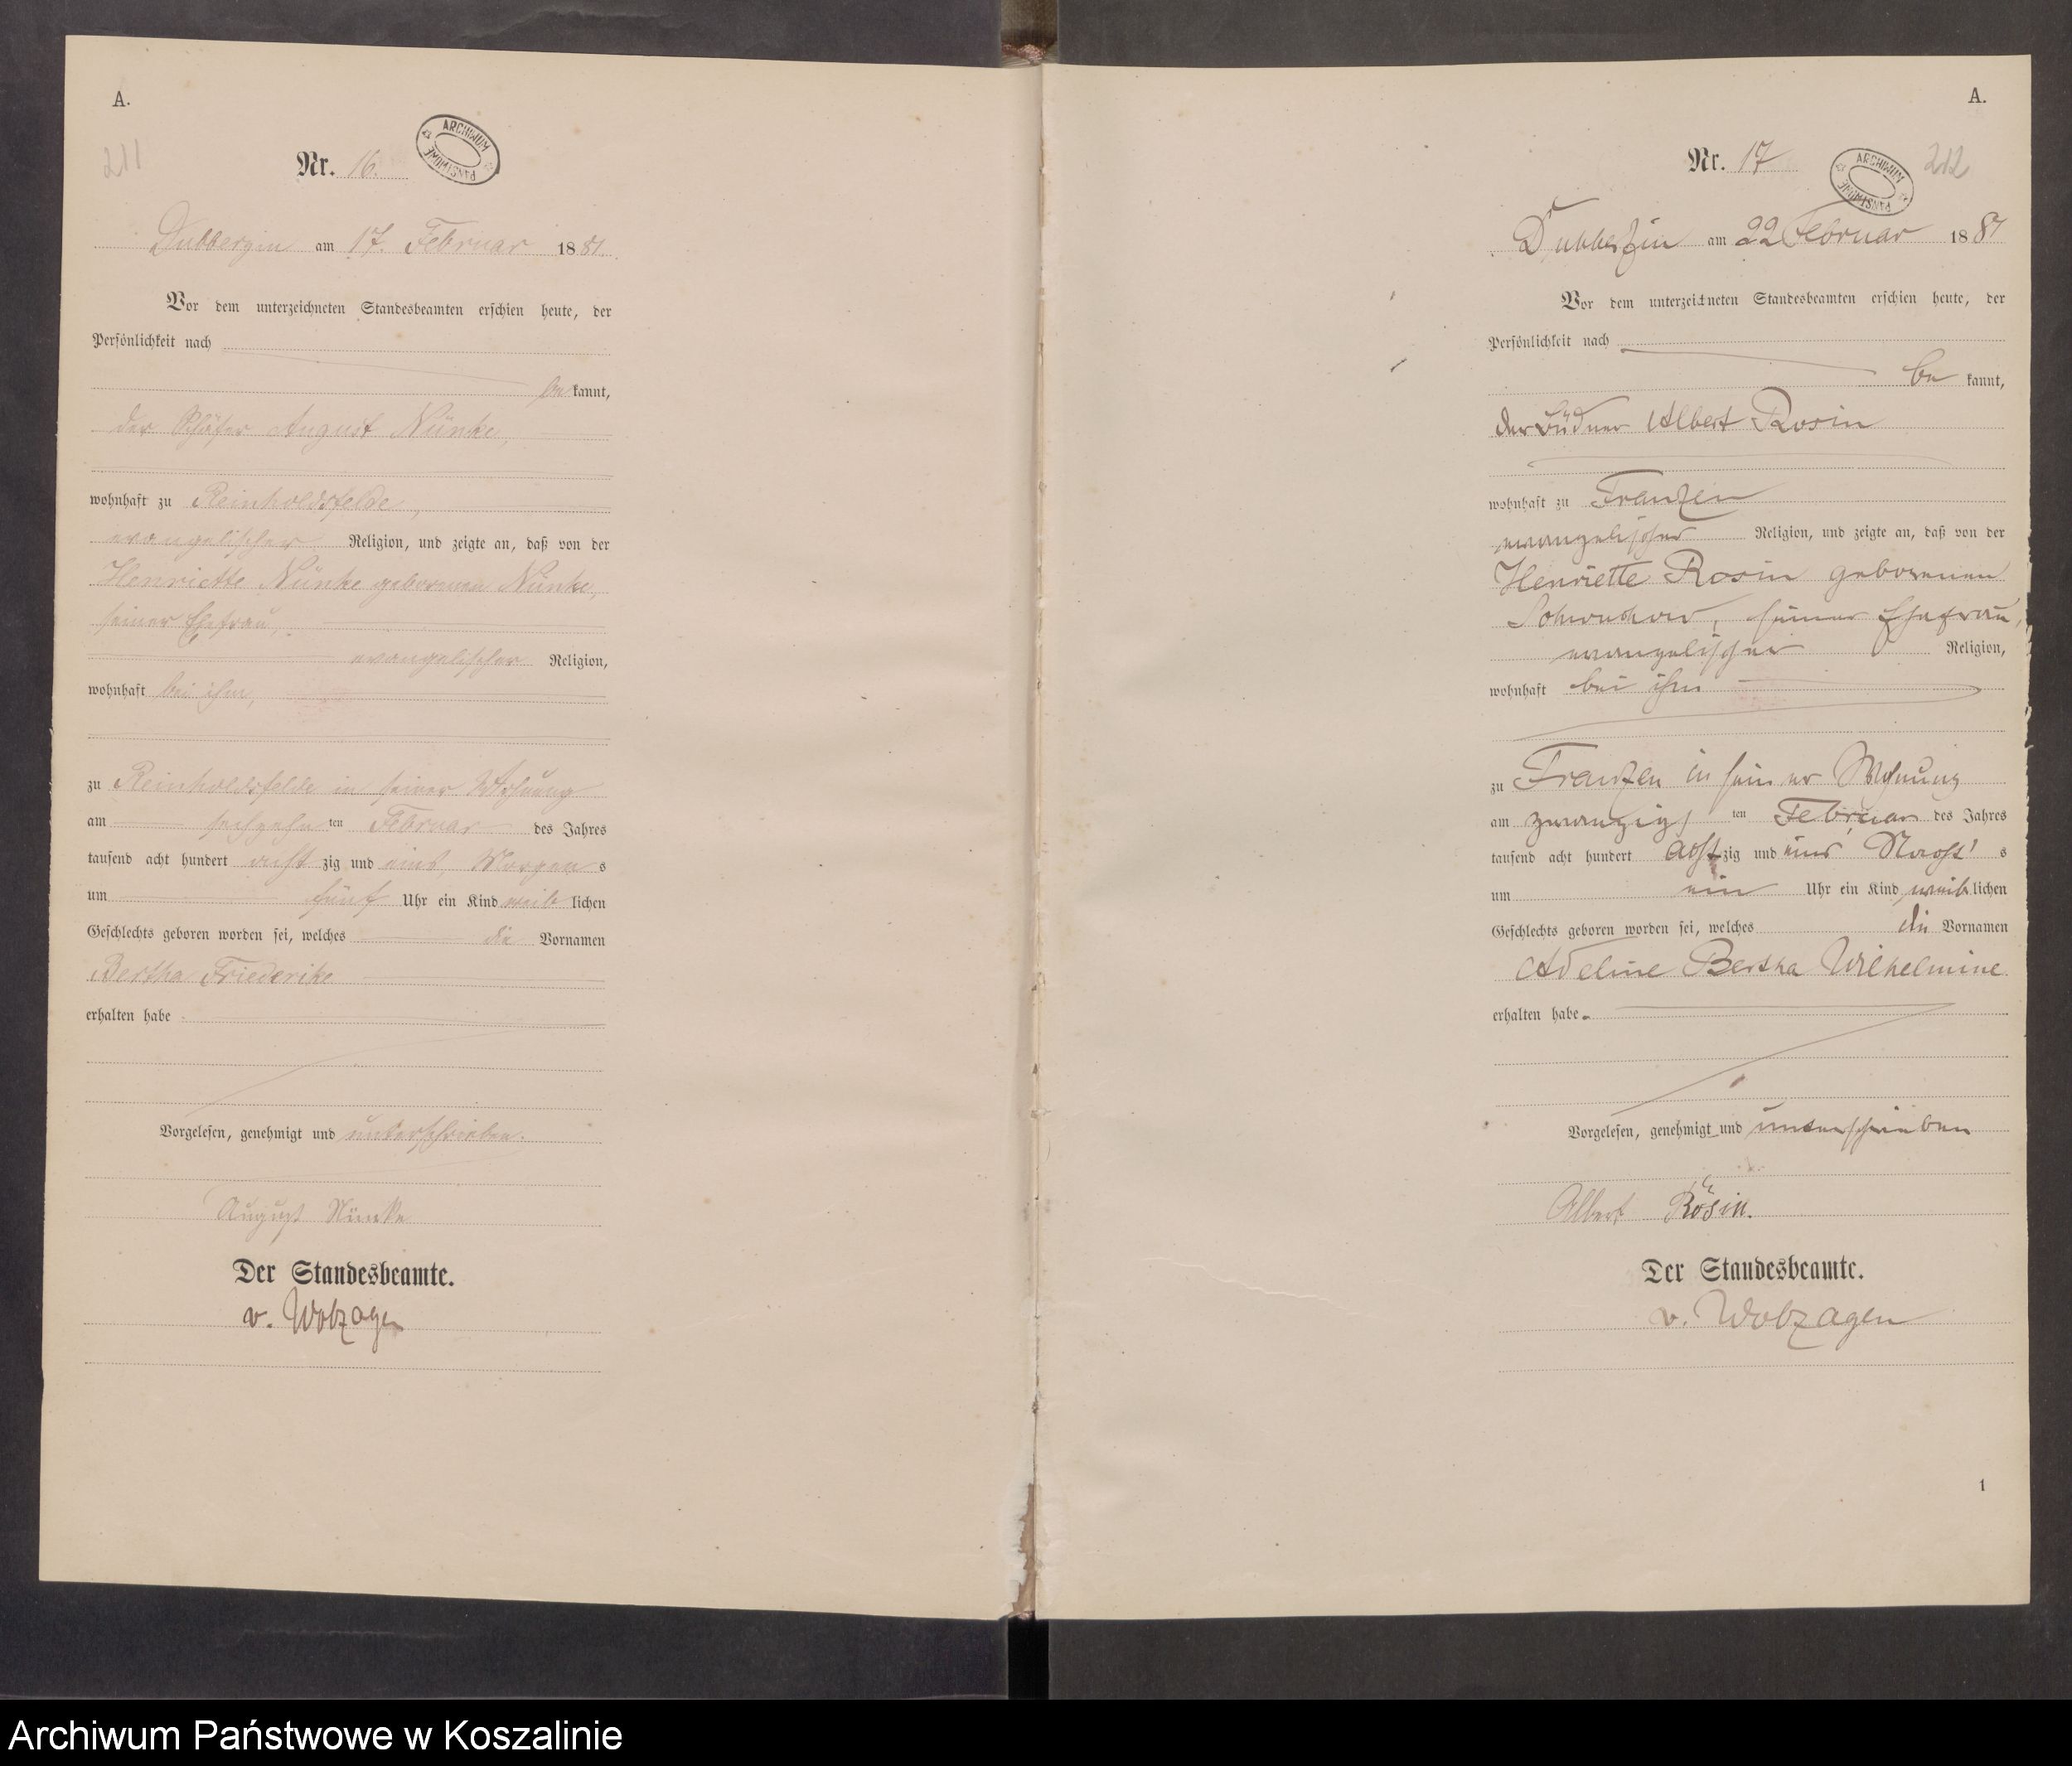 A.
211
Nr. 16.
ARCHIWUM PAŃSTWOWE
Dubberzin am 17. Februar 1881.
Vor dem unterzeichneten Standesbeamten erschien heute, der
Persönlichkeit nach
be kannt,
der Schäfer August Nünke,
wohnhaft zu Reinholdsfelde,
evangelischer Religion, und zeigte an, daß von der
Henriette Nünke geborenen Nünke,
seiner Ehefrau,
evangelischer Religion,
wohnhaft bei ihm,
zu Reinholdsfelde in seiner Wohnung
am sechzehn ten Februar des Jahres
tausend acht hundert acht zig und eins, Morgen s
um fünf Uhr ein Kind weib lichen
Geschlechts geboren worden sei, welches die Vornamen
Bertha Friederike
erhalten habe.
Vorgelesen, genehmigt und unterschrieben.
August Nünke
Der Standesbeamte.
A.
Nr. 17
ARCHIWUM PAŃSTWOWE
212
Dubberzin am 22 Februar 1881
Vor dem unterzeichneten Standesbeamten erschien heute, der
Persönlichkeit nach
be kannt,
der Büdner Albert Rosin
wohnhaft zu Franzen
evangelischer Religion, und zeigte an, daß von der
Henriette Rosin geborenen
seiner Ehefrau,
evangelischer Religion,
wohnhaft bei ihm
zu Franzen in seiner Wohnung
am zwanzigs ten Februar des Jahres
tausend acht hundert acht zig und eins Nacht s
um ein Uhr ein Kind weib lichen
Geschlechts geboren worden sei, welches die Vornamen
Adeline Bertha Wilhelmine
erhalten habe.
Vorgelesen, genehmigt und unterschrieben
Albert Rosin.
Der Standesbeamte.
1
Archiwum Państwowe w Koszalinie